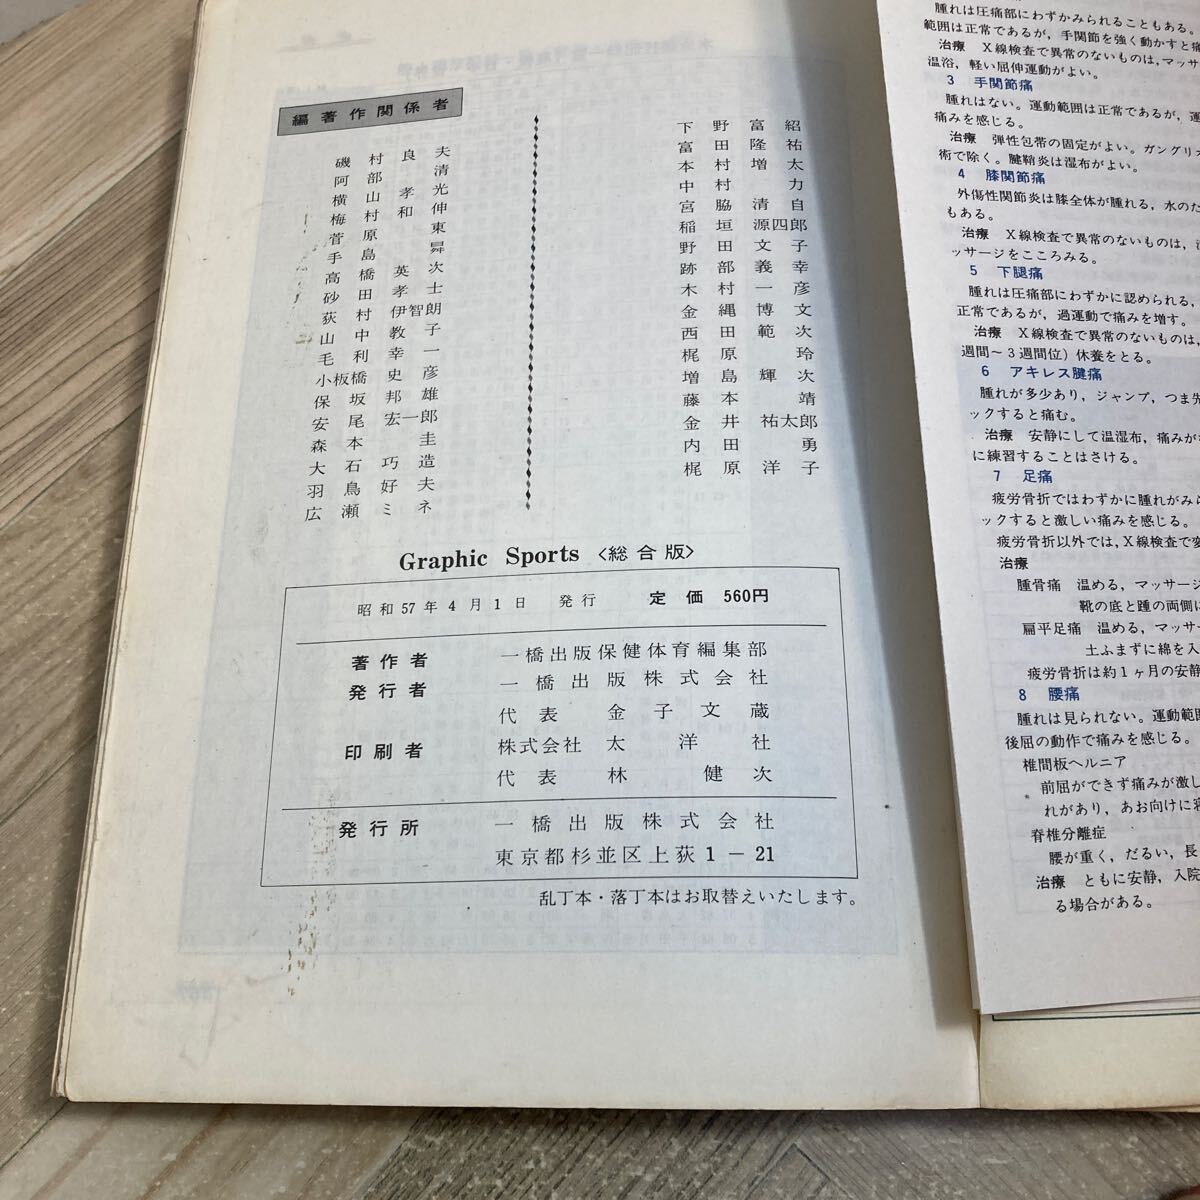 編著作関係者
磯村良夫
阿部清
横山孝光
梅村和伸
菅原東
手島曻
高橋英次
砂田孝士
荻村伊智朗
山中教子
毛利幸一
小板橋史彦
保坂邦雄
安尾宏一郎
森本圭
大石巧造
羽鳥好夫
広瀬ミネ
下野富紹
富田隆祐
本村増太
中村力
宮脇清自
稲垣源四郎
野田文子
跡部義幸
木村一彦
金縄博文
西田範次
梶原玲
増島輝次
藤本靖
金井祐太郎
内田勇
梶原洋子
Graphic Sports〈総合版〉
昭和57年4月1日 発行 定価 560円
著作者 一橋出版保健体育編集部
発行者 一橋出版株式会社
代表 金子文蔵
印刷者 株式会社太洋社
代表 林健次
発行所 一橋出版株式会社
東京都杉並区上荻1－21
乱丁本・落丁本はお取替えいたします。
腫れは圧痛部にわずかみられることもある。
範囲は正常であるが，手関節を強く動かすと
治療 X線検査で異常のないものは，マッサ
温浴，軽い屈伸運動がよい。
3 手関節痛
腫れはない。運動範囲は正常であるが，運
痛みを感じる。
治療 弾性包帯の固定がよい。ガングリオ
術で除く。腱鞘炎は湿布がよい。
4 膝関節痛
外傷性関節炎は膝全体が腫れる，水のた
もある。
治療 X線検査で異常のないものは，
ッサージをこころみる。
5 下腿痛
腫れは圧痛部にわずかに認められる，
正常であるが，過運動で痛みを増す。
治療 X線検査で異常のないものは，
週間～3週間位）休養をとる。
6 アキレス腱痛
腫れが多少あり，ジャンプ，つま先
ックすると痛む。
治療 安静にして温湿布，痛みが
に練習することはさける。
7 足痛
疲労骨折ではわずかに腫れがみら
ックすると激しい痛みを感じる。
疲労骨折以外では，X線検査で変
治療
腫骨痛 温める，マッサージ
靴の底と踵の両側に
扁平足痛 温める，マッサー
土ふまずに綿を入
疲労骨折は約1ヶ月の安静
8 腰痛
腫れは見られない。運動範囲
後屈の動作で痛みを感じる。
椎間板ヘルニア
前屈ができず痛みが激し
れがあり，あお向けに寝
脊椎分離症
腰が重く，だるい，長
治療 ともに安静，入院
る場合がある。